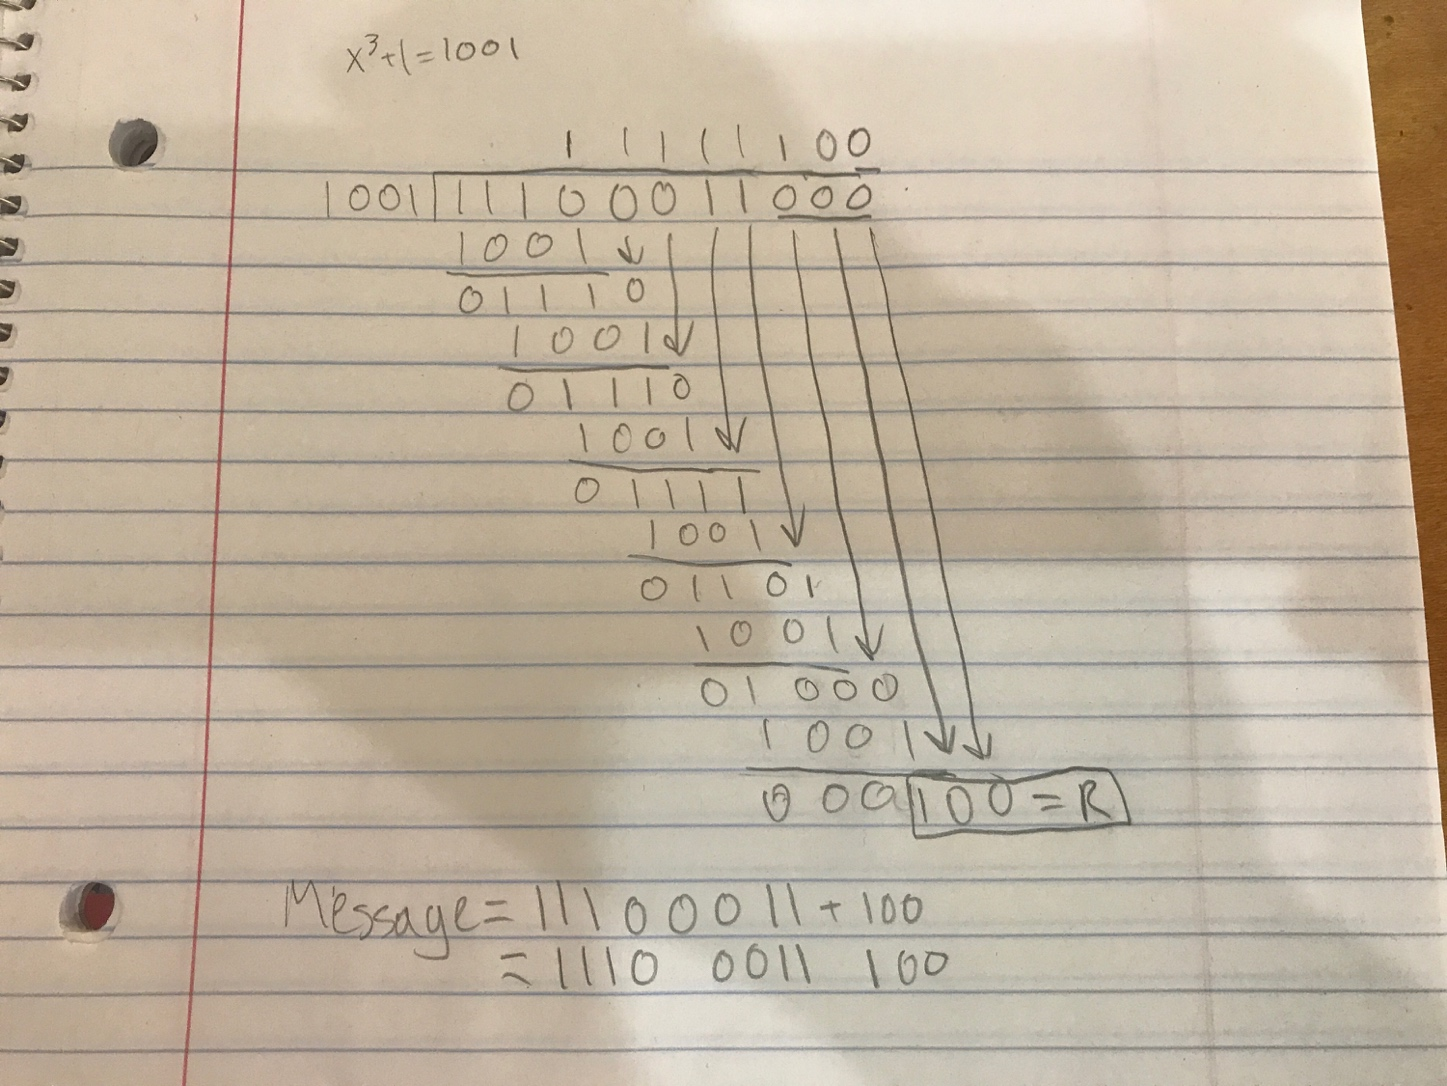 x³+1=1001
11111100
1001 11100011000
1001
01110
1001
01110
1001
01111
1001
01101
1001
01000
1001
000100=R
Message=11100011+100
=1110 0011 100